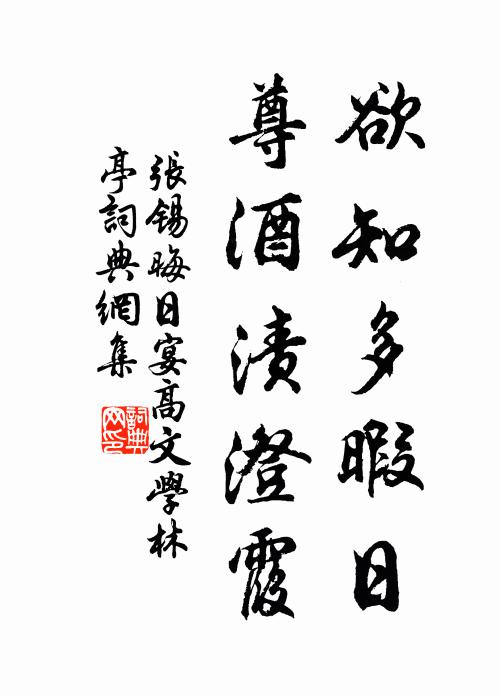 欲知多暇日
尊酒漬澄霞
張錫晦日宴高文學林
亭詞典網集
詞典
网印